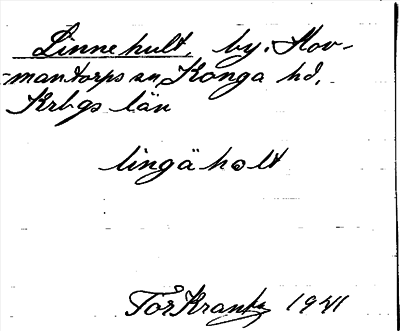 Linnehult, by. Hov-
mantorps sn, Konga hd,
Krbgs län
lingäholt
Tor Krantz 1941